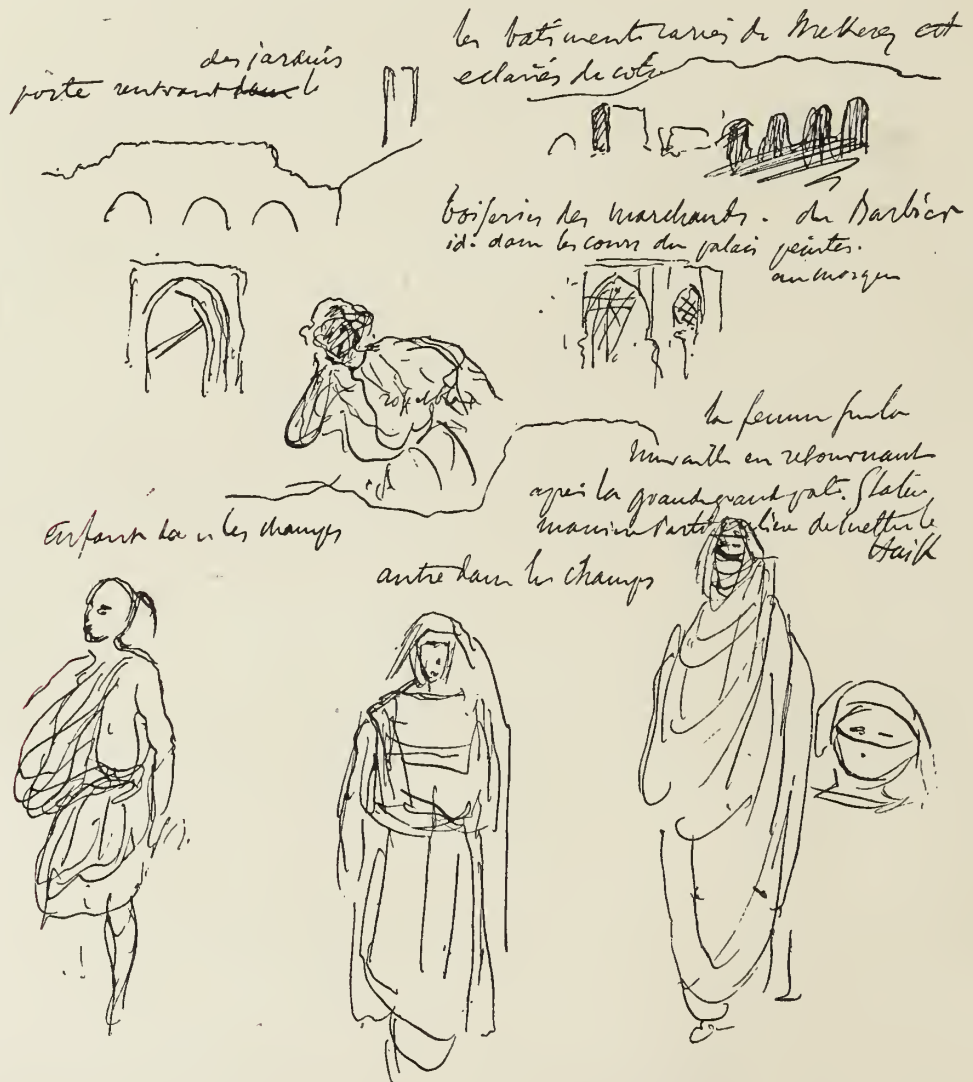 des jardins
porte rentrant dans le
les batiments carrés de Mekenez et
eclairés de coté
boiseries des marchands. du Barbier
id. dans les cours du palais peintes.
au mosquée
la femme sur la
muraille en retournant
après la grande grand
maniere au lieu de mettre le
Haik
Enfant dans les champs
autre dans les champs